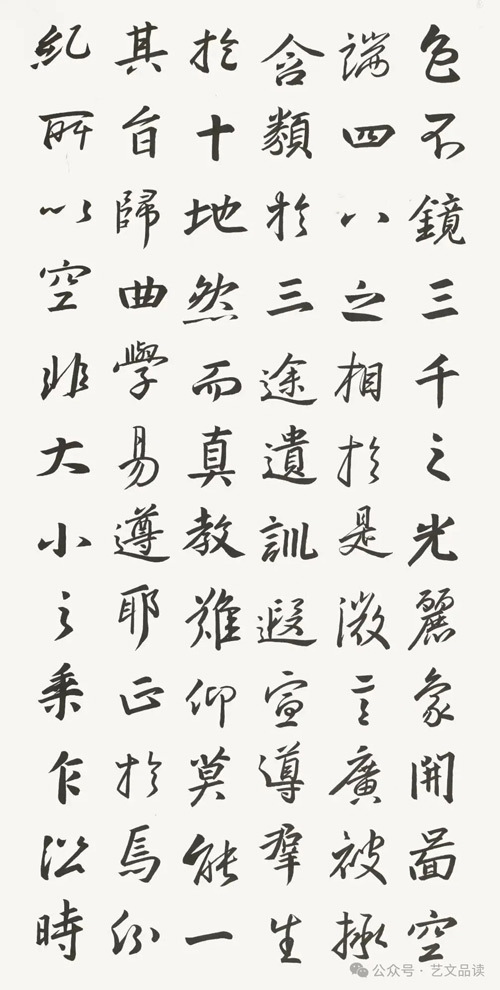 色不鏡三千之光麗象開圖空
端四八之相於是微言廣被拯
含類於三途遺訓遐宣導羣生
於十地然而真教難仰莫能一
其旨歸曲學易遵耶正於焉紛
糺所以空非大小之乘乍沿時
公众号 · 艺文品读